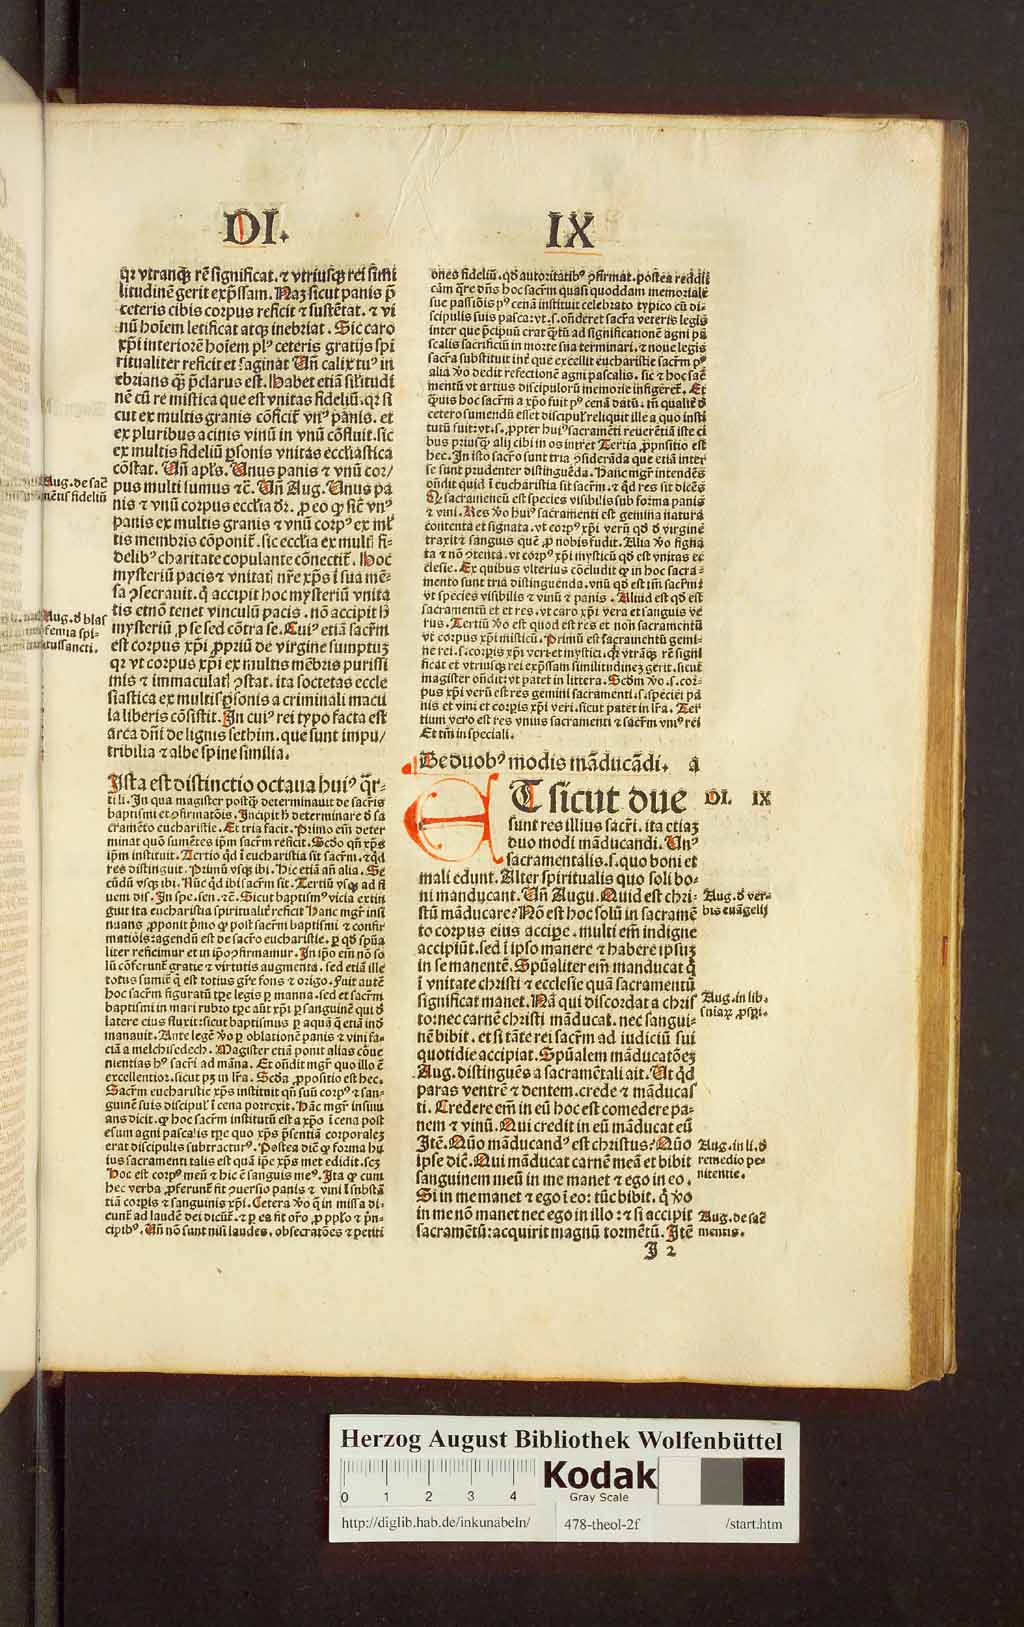 DI.
IX
qꝛ vtranqꝫ rē significat. ⁊ vtriusqꝫ rei simi
litudinē gerit exp̄ssam. Naꝫ sicut panis p̄
ceteris cibis corpus reficit ⁊ sustētat. ⁊ vi
nū hoīem letificat atqꝫ inebriat. Sic caro
xp̄i interiorē hoīem plꝰ ceteris gratijs spi
ritualiter reficit et saginat Un̄ calix tuꝰ in
ebrians qꝫ p̄clarus est. Habet etiā silitudi
nē cū re mistica que est vnitas fideliū. qꝛ si
cut ex multis granis cōficit᷑ vnꝰ panis. et
ex pluribus acinis vinū in vnū cōfluit. sic
ex multis fideliū ꝑsonis vnitas eccl̄iastica
cōstat. Un̄ apl̄s. Unus panis ⁊ vnū cor/
pus multi sumus ⁊c̄. Un̄ Aug. Unus pa
nis ⁊ vnū corpus eccl̄ia dr̄. ꝓ eo ꝙ sic̄ vnꝰ
panis ex multis granis ⁊ vnū corpꝰ ex ml̄
tis membris cōponit᷑. sic eccl̄ia ex multꝭ fi-
delibꝰ charitate copulante cōnectit᷑. Hoc
mysteriū pacis ⁊ vnitatꝭ nr̄e xp̄s ī sua mē-
sa ꝯsecrauit. q̇ accipit hoc mysteriū vnita
tis et nō tenet vinculū pacis. nō accipit h̄
mysteriū ꝓ se sed cōtra se. Cuiꝰ etiā sacr̄m
est corpus xp̄i ꝓpriū de virgine sumptuꝫ
qꝛ vt corpus xp̄i ex multis mēbris purissi
mis ⁊ immaculatꝭ ꝯstat. ita societas eccle
siastica ex multis ꝑsonis a criminali macu
la liberis cōsistit. In cuiꝰ rei typo facta est
arca dn̄i de lignis sethim. que sunt impu/
tribilia ⁊ albe spine similia.
Aug. de sac̄
mētis fideliū
Aug. ď blas
femia spi-
ritussancti.
Ista est distinctio octaua huiꝰ q̄r-
ti li. In qua magister postq̄ꝫ determinauit de sacr̄is
baptismi et ꝯfirmatōis. Incipit h̄ determinare ď sa
cramēto eucharistie. Et tria facit. Primo em̄ deter
minat quō sumētes ip̄m sacr̄m reficit. Scd̄o qn̄ xp̄s
ip̄m instituit. Tertio qd̄ ī eucharistia sit sacr̄m. ⁊ qd̄
res distinguit. Primū vsqꝫ ibi. Hic etiā an̄ alia. Se
cūdū vsqꝫ ibi. Nūc qd̄ ibi sacr̄m sit. Tertiū vsqꝫ ad fi
nem dis. In spe. sen. ⁊c̄. Sicut baptismꝰ vicia extin
guit ita eucharistia spiritualit᷑ reficit Hanc mgr̄ insi
nuans ꝓponit p̄mo ꝙ post sacr̄m baptismi ⁊ confir
matiōis: agendū est de sacr̄o eucharistie. ꝑ qd̄ spūa
liter reficimur et in ip̄o ꝯfirmamur. In ip̄o em̄ nō so
lū cōferunt᷑ gratie ⁊ virtutis augmenta. sed etiā ille
totus sumit᷑ q̇ est totius gr̄e fons ⁊ origo. Fuit autē
hoc sacr̄m figuratū tꝑe legis ꝑ manna. sed et sacr̄m
baptismi in mari rubro tꝑe aūt xp̄i ꝑ sanguinē qui ď
latere eius fluxit: sicut baptismus ꝑ aquā q̄ etiā inď
manauit. Ante legē ꝟo ꝑ oblationē panis ⁊ vini fa-
ctā a melchisedech. Magister etiā ponit alias cōue
nientias hꝰ sacr̄i ad māna. Et on̄dit mgr̄ quo illo ē
excellentior. sicut pꝫ in lr̄a. Scd̄a ꝓpositio est hec.
Sacr̄m eucharistie xp̄s instituit qn̄ suū corpꝰ ⁊ san-
guinē suis discipulꝭ ī cena porrexit. Hāc mgr̄ insinu
ans dicit. ꝙ hoc sacr̄m institutū est a xp̄o ī cena post
esum agni pascalis tꝑe quo xp̄s p̄sentiā corporaleꝫ
erat discipulis subtracturꝰ. Postea dic̄ ꝙ forma hu
ius sacramenti talis est quā ip̄e xp̄s met edidit. scꝫ
Hoc est corpꝰ meū ⁊ hic ē sanguis meꝰ. Ita ꝙ cum
hec verba ꝓferunt᷑ fit ꝯuersio panis ⁊ vini ī sub̄stā
tiā corꝑis ⁊ sanguinis xp̄i. Cetera ꝟo q̄ in missa di-
cunt᷑ ad laudē dei dicūt᷑. ⁊ ꝑ ea fit or̄o ꝓ pplo ⁊ pn̄-
cipibꝰ. Un̄ nō sunt nisi laudes. obsecratōes ⁊ petiti
ones fideliū. qd̄ autoritatibꝰ ꝯfirmat. postea reddit
cām q̄re dn̄s hoc sacr̄m quasi quoddam memoriale
sue passiōis pꝰ cenā instituit celebrato typico cū di-
scipulis suis pasca: vt. s. on̄deret sacr̄a veteris legis
inter que p̄cipuū erat q̄ꝫtū ad significationē agni pa
scalis sacrificiū in morte sua terminari. ⁊ noue legis
sacr̄a substituit int᷑ que excellit eucharistie sacr̄m pꝰ
alia ꝟo dedit refectionē agni pascalis. sic ⁊ hoc sac̄
mentū vt artius discipulorū memorie infigeret᷑. Et
q̄ꝫuis hoc sacr̄m a xp̄o fuit pꝰ cenā datū. tn̄ qualit᷑ ď
cetero sumendū esset discipulꝭ reliquit ille a quo insti
tutū fuit: vt. s. ꝓpter huiꝰ sacramēti reuerētiā iste ci
bus priusqꝫ alij cibi in os intret Tertia ꝓpositio est
hec. In isto sacr̄o sunt tria ꝯsiderāda que etiā inter
se sunt prudenter distinguēda. Hanc mgr̄ intendēs
on̄dit quid ī eucharistia sit sacr̄m. ⁊ qd̄ res sit dicēs
Ꝙ sacramentū est species visibilis sub forma panis
⁊ vini. Res ꝟo huiꝰ sacramenti est gemina natura
contenta et signata. vt corpꝰ xp̄i verū qd̄ ď virginē
traxit ⁊ sanguis quē ꝓ nobis fudit. Alia ꝟo signa
ta ⁊ nō ꝯtenta. vt corpꝰ xp̄i mysticū qd̄ est vnitas ec
clesie. Ex quibus vlterius cōcludit ꝙ in hoc sacra-
mento sunt tria distinguenda. vnū qd̄ est tm̄ sacr̄m:
vt species visibilis ⁊ vinū ⁊ panis. Aliud est qd̄ est
sacramentū et et res. vt caro xp̄i vera et sanguis ve
rus. Tertiū ꝟo est quod est res et non sacramentū
vt corpus xp̄i misticū. Primū est sacramentū gemi-
ne rei. s. corꝑis xp̄i veri et mystici. qꝛ vtrāqꝫ rē signi
ficat et vtriusqꝫ rei exp̄ssam similitudineꝫ gerit. sicut
magister on̄dit: vt patet in littera. Scd̄m ꝟo. s. cor-
pus xp̄i verū est res gemini sacramenti. s. speciei pa
nis et vini et corꝑis xp̄i veri. sicut patet in lr̄a. Ter
tium vero est res vnius sacramenti ⁊ sacr̄m vniꝰ rei
Et tm̄ in speciali.
De duobꝰ modis māducādi. a
ET sicut due
DI. IX
sunt res illius sacr̄i. ita etiaꝫ
duo modi māducandi. Unꝰ
sacramentalis. s. quo boni et
mali edunt. Alter spiritualis quo soli bo-
ni manducant. Un̄ Augu. Quid est chri-
stū māducare? Nō est hoc solū in sacramē
to corpus eius accipe. multi em̄ indigne
accipiūt. sed ī ipso manere ⁊ habere ipsuꝫ
in se manentē. Spūaliter em̄ manducat q̇
ī vnitate christi ⁊ ecclesie quā sacramentū
significat manet. Nā qui discordat a chris
to: nec carnē christi māducat. nec sangui-
nē bibit. et si tāte rei sacr̄m ad iudiciū sui
quotidie accipiat. Spūalem māducatōeꝫ
Aug. distinguēs a sacramētali ait. Ut qd̄
paras ventrē ⁊ dentem. crede ⁊ māducas
ti. Credere em̄ in eū hoc est comedere pa-
nem ⁊ vinū. Qui credit in eū māducat eū
Itē. Quō māducandꝰ est christus? Quō
ipse dic̄. Qui māducat carnē meā et bibit
sanguinem meū in me manet ⁊ ego in eo.
Si in me manet ⁊ ego ī eo: tūc bibit. q̇ ꝟo
in me nō manet nec ego in illo: ⁊ si accipit
sacramētū: acquirit magnū tormētū. Itē
Aug. ď ver-
bis euāgelij
Aug. in lib.
sniaꝝ ꝓsꝑi.
Aug. in li. ď
remedio pe-
nitentie.
Aug. de sac̄
mentis.
I 2
Herzog August Bibliothek Wolfenbüttel
0 1 2 3 4
Kodak
Gray Scale
http://diglib.hab.de/inkunabeln/ 478-theol-2f /start.htm